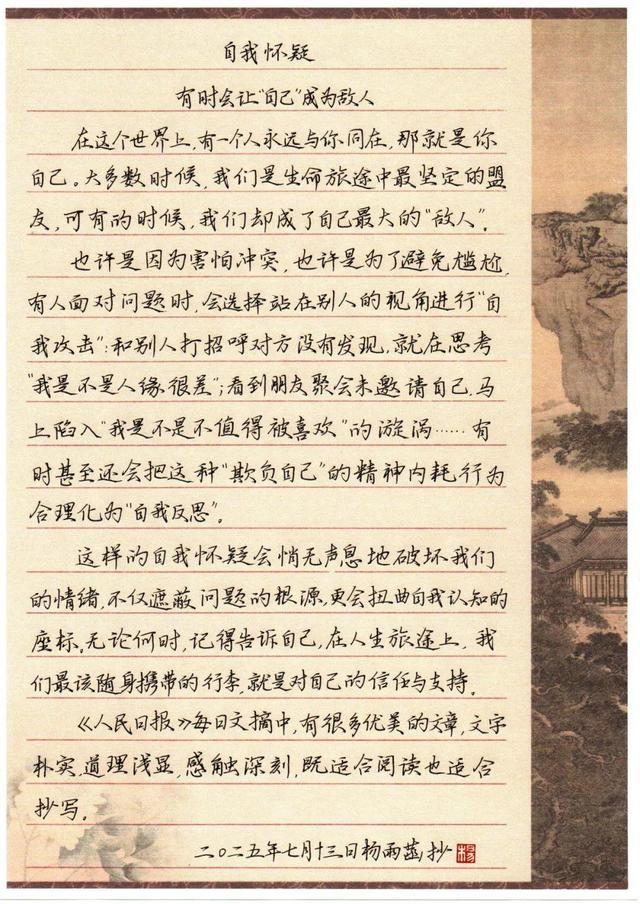 自我怀疑
有时会让“自己”成为敌人
在这个世界上,有一个人永远与你同在,那就是你
自己。大多数时候,我们是生命旅途中最坚定的盟
友,可有的时候,我们却成了自己最大的“敌人”。
也许是因为害怕冲突,也许是为了避免尴尬,
有人面对问题时,会选择站在别人的视角进行“自
我攻击”:和别人打招呼对方没有发现,就在思考
“我是不是人缘很差”;看到朋友聚会未邀请自己,马
上陷入“我是不是不值得被喜欢”的漩涡……有
时甚至还会把这种“欺负自己”的精神内耗行为
合理化为“自我反思”。
这样的自我怀疑会悄无声息地破坏我们
的情绪,不仅遮蔽问题的根源,更会扭曲自我认知的
座标。无论何时,记得告诉自己,在人生旅途上,我
们最该随身携带的行李,就是对自己的信任与支持。
《人民日报》每日文摘中,有很多优美的文章,文字
朴实,道理浅显,感触深刻,既适合阅读也适合
抄写。
二〇二五年七月十三日杨雨菡抄 杨